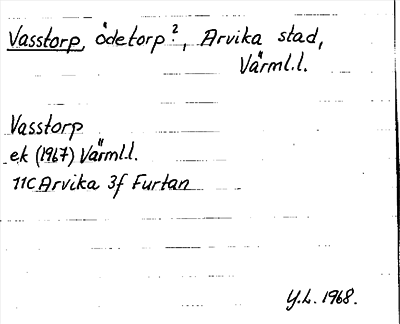 Vasstorp, ödetorp?², Arvika stad,
Värml.l.
Vasstorp
ek (1967) Värml.l.
11C Arvika 3f Furtan
Y.L. 1968.